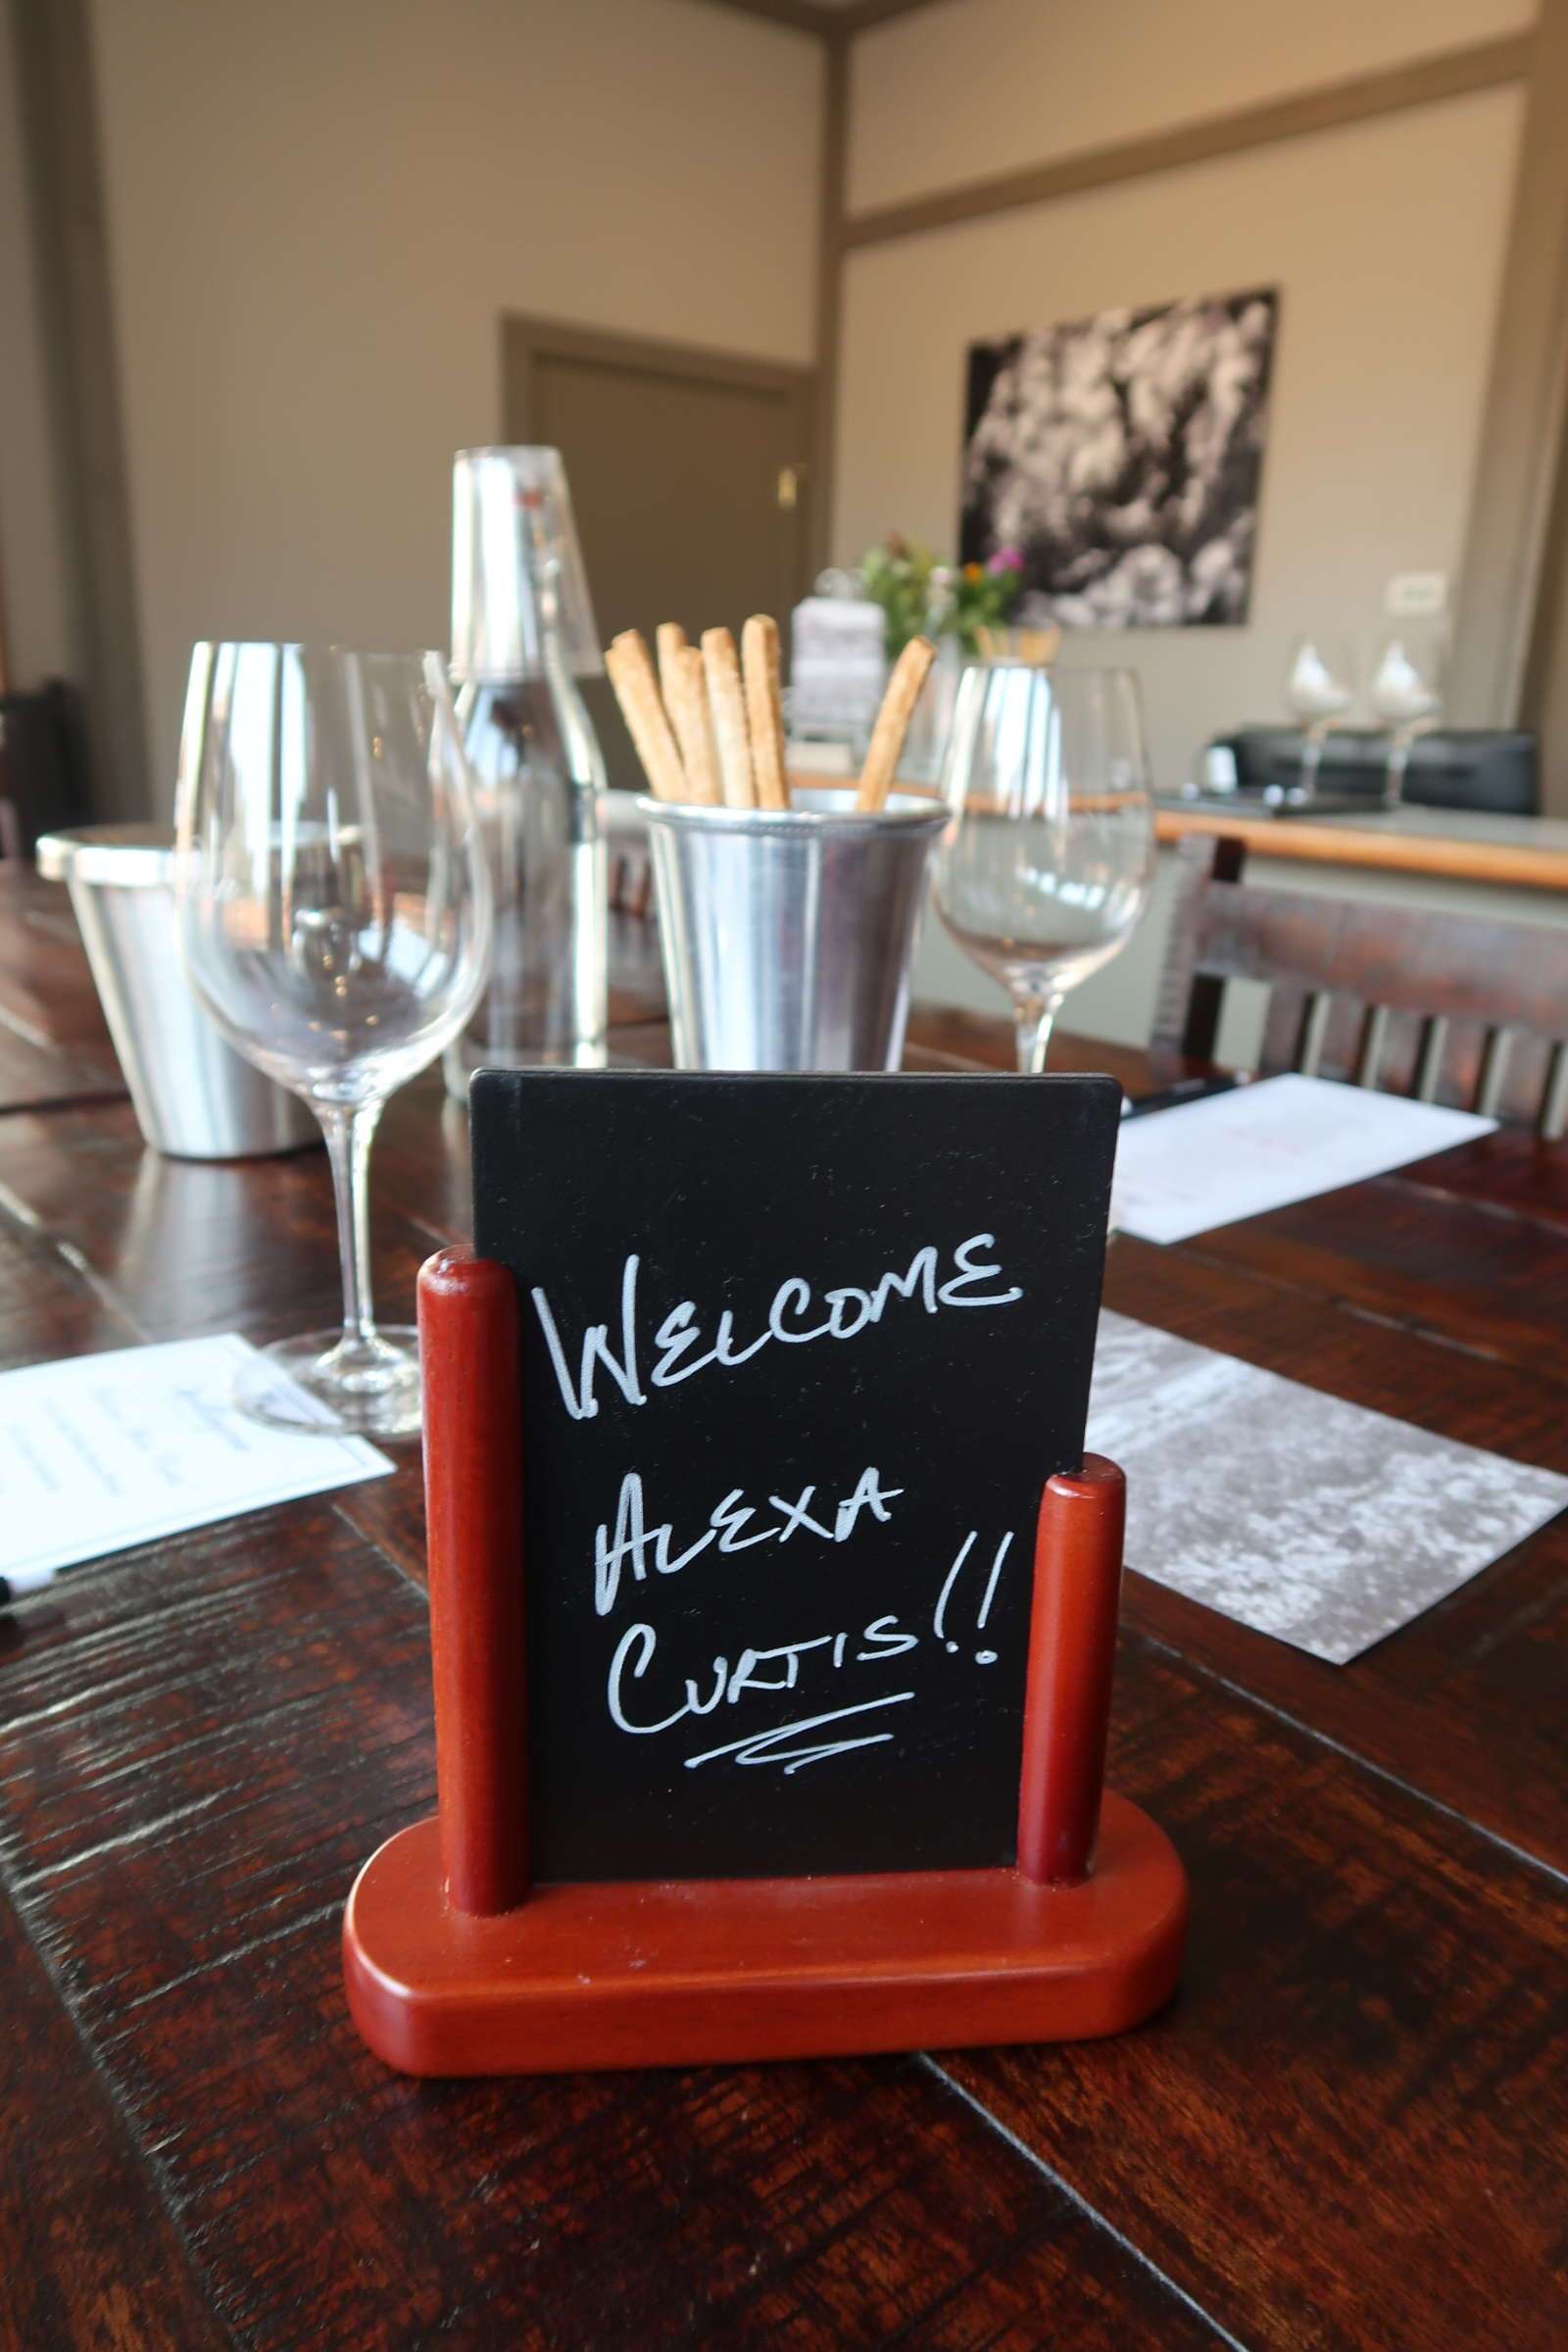 WELCOME
ALEXA
CURTIS!!